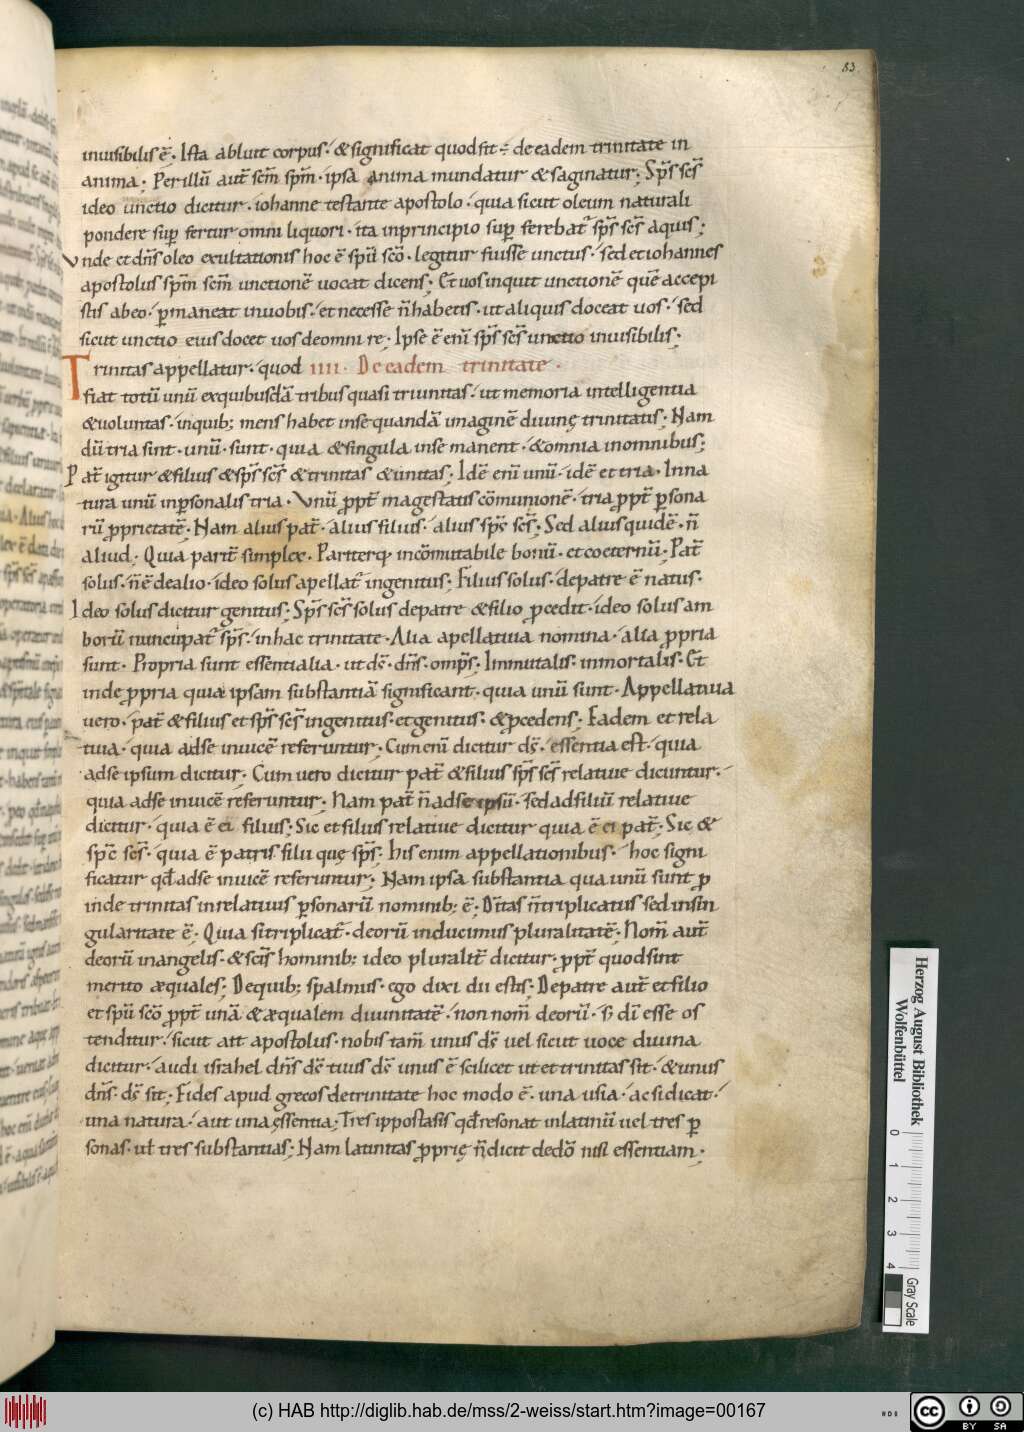 83
inuisibilis ē. Ista abluit corpus· & significat quod sit ÷ de eadem trinitate in
anima; Per illū aut̄ sc̄m sp̄m· ipsa anima mundatur & saginatur; Sp̄s sc̄s
ideo unctio dicitur· iohanne testante apostolo· quia sicut oleum naturali
pondere suꝑ fertur omni liquori· ita inprincipio suꝑ ferebat᷑ sp̄s sc̄s aquis;
Vnde et dn̄s oleo exultationis hoc ē sp̄u sc̄o· legitur fuisse unctus· sed et iohannes
apostolus sp̄m sc̄m unctionē uocat dicens; Et uos inquit unctionē quē accepi
stis abeo· ꝑmaneat inuobis· et necesse n̄ habetis· ut aliquis doceat uos· sed
sicut unctio eius docet uos deomni re; Ipse ē enī sp̄s sc̄s unctio inuisibilis;
Trinitas appellatur· quod IIII· De eadem trinitate·
fiat totū unū exquibusdā tribus quasi triunitas· ut memoria intelligentia
& uoluntas· inquib; mens habet inse quandā imaginē diuinę trinitatis; Nam
dū tria sint· unū· sunt· quia & singula inse manent· & omnia inomnibus;
Pat̄ igitur & filius & sp̄s sc̄s & trinitas & unitas; Idē enī unū· idē et tria· Inna
tura unū inꝑsonalis tria· Vnū ꝓpt̄ magestatis cōmunionē· tria ꝓpt̄ ꝑsona
rū ꝓprietatē· Nam alius pat̄· alius filius· alius sp̄s sc̄s; Sed alius quidē· n̄
aliud; Quia parit̄ simplex· Pariterq; incōmutabile bonū· et coeternū; Pat̄
solus· n̄ ē dealio· ideo solus apellat᷑ ingenitus; Filius solus· depatre ē natus·
Ideo solus dicitur genitus; Sp̄s sc̄s solus depatre & filio ꝓcedit· ideo solus am
borū nuncupat᷑ sp̄s· inhac trinitate· Alia apellatiua nomina· alia ꝓpria
sunt· Propria sunt essentialia· ut dē· dn̄s· omp̄s· Immutalis· inmortalis· Et
inde ꝓpria quia ipsam substantiā significant· quia unū sunt· Appellatiua
uero· pat̄ & filius et sp̄s sc̄s ingenitus· et genitus· & ꝓcedens; Eadem et rela
tiua· quia adse inuicē referuntur; Cum enī dicitur ds̄· essentia est· quia
adse ipsum dicitur; Cum uero dicitur pat̄ & filius sp̄s sc̄s relatiue dicuntur·
quia adse inuicē referuntur; Nam pat̄ n̄ adse ipsū· sed adfiliū relatiue
dicitur· quia ē ei filius; Sic et filius relatiue dicitur quia ē ei pat̄; Sic &
sp̄c sc̄s· quia ē patris filii quę sp̄s; his enim appellationibus· hoc signi
ficatur qđ adse inuicē referuntur; Nam ipsa substantia qua unū sunt ꝓ
inde trinitas inrelatiuis ꝑsonarū nominib; ē; Dn̄tas n̄ triplicatus sed insin
gularitate ē; Quia si triplicat᷑· deorū inducimus pluralitatē; Nom̄ aut̄
deorū inangelis· & sc̄is hominib; ideo pluralit̄ dicitur· ꝓpt̄ quod sint
merito æquales; Dequib; spalmus· ego dixi dii estis; Depatre aut̄ et filio
et sp̄u sc̄o ꝓpt̄ unā & æqualem diuinitatē· non nom̄ deorū· s; dī esse os
tenditur· sicut ait apostolus· nobis tam̄ unus ds̄ uel sicut uoce diuina
dicitur· audi israhel dn̄s ds̄ tuus ds̄ unus ē scilicet ut et trinitas sit· & unus
dn̄s· ds̄ sit; Fides apud grecos detrinitate hoc modo ē· una usia· ac si dicat·
una natura· aut una ęssentia; Tres ippostasis qđ resonat inlatinū uel tres ꝑ
sonas· uł tres substantias; Nam latinitas ꝓprię n̄ dicit dedō nisi essentiam;
Herzog August Bibliothek
Wolfenbüttel
0 1 2 3 4
Gray Scale
(c) HAB http://diglib.hab.de/mss/2-weiss/start.htm?image=00167
cc BY SA